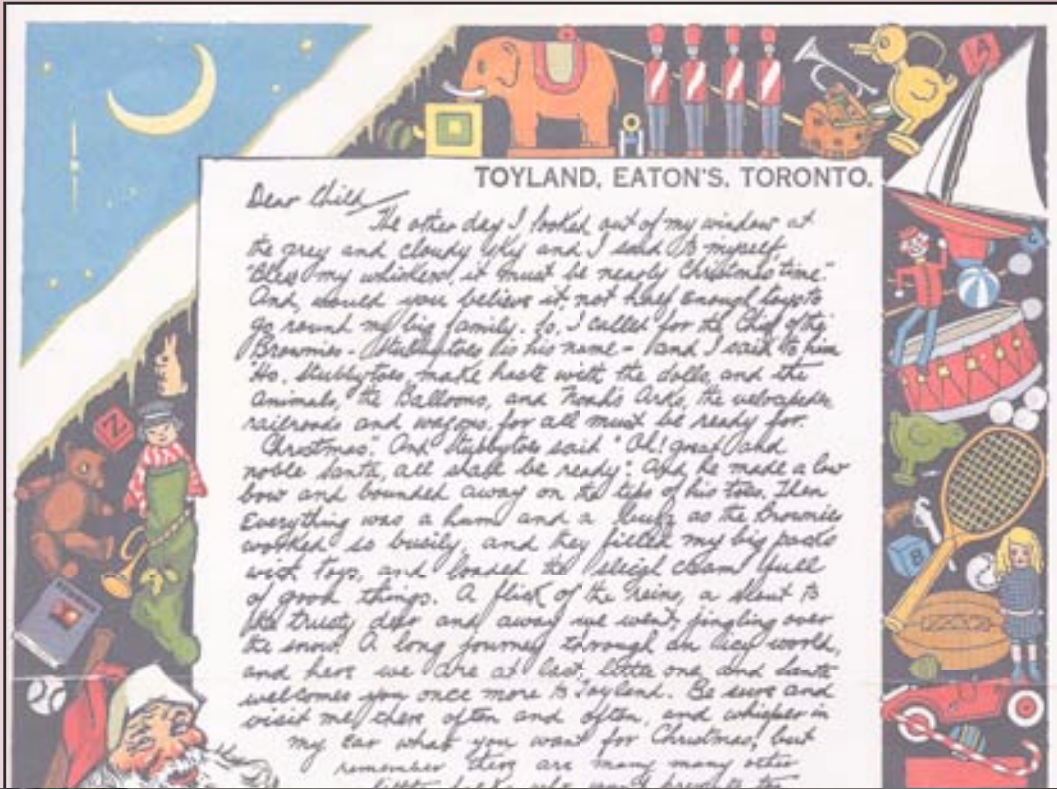 TOYLAND, EATON'S, TORONTO.
Dear Child,
The other day I looked out of my window at
the grey and cloudy sky and I said to myself,
"Bless my whiskers, it must be nearly Christmas time"
And, would you believe it, not half enough toys to
go round my big family. So, I called for the Chief of the
Brownies - Stubbytoes is his name - and I said to him
"Ho, Stubbytoes, make haste with the dolls, and the
animals, the Balloons, and Noah's Arks, the velocipedes
railroads and wagons, for all must be ready for
Christmas". And Stubbytoes said "Oh! great and
noble Santa, all shall be ready". And he made a low
bow and bounded away on the tips of his toes. Then
Everything was a hum and a buzz as the Brownies
worked so busily, and they filled my big packs
with toys, and loaded the sleigh cram full
of good things. A flick of the reins, a shout to
the trusty deer and away we went, jingling over
the snow. A long journey through an icy world,
and here we are at last, little one, and Santa
welcomes you once more to Toyland. Be sure and
visit me there, often and often, and whisper in
my ear what you want for Christmas, but
remember there are many many other
little folks who want presents too
A
Z
B